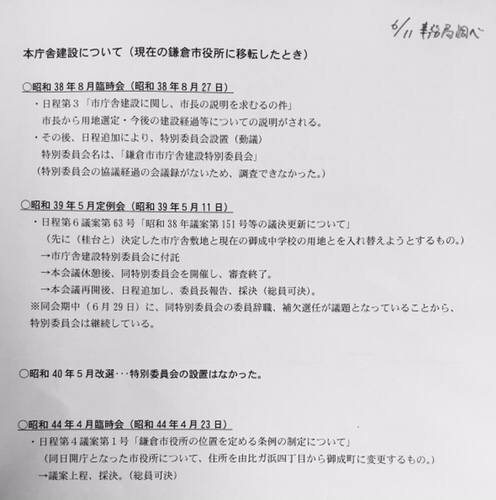 6/11 事務局調べ
本庁舎建設について（現在の鎌倉市役所に移転したとき）
○昭和38年8月臨時会（昭和38年8月27日）
・日程第3「市庁舎建設に関し、市長の説明を求むるの件」
市長から用地選定・今後の建設経過等についての説明がされる。
・その後、日程追加により、特別委員会設置（動議）
特別委員会名は、「鎌倉市市庁舎建設特別委員会」
（特別委員会の協議経過の会議録がないため、調査できなかった。）
○昭和39年5月定例会（昭和39年5月11日）
・日程第6議案第63号「昭和38年議案第151号等の議決更新について」
（先に（桂台と）決定した市庁舎敷地と現在の御成中学校の用地とを入れ替えようとするもの。）
→市庁舎建設特別委員会に付託
→本会議休憩後、同特別委員会を開催し、審査終了。
→本会議再開後、日程追加し、委員長報告、採決（総員可決）。
※同会期中（6月29日）に、同特別委員会の委員辞職、補欠選任が議題となっていることから、
特別委員会は継続している。
○昭和40年5月改選･･･特別委員会の設置はなかった。
○昭和44年4月臨時会（昭和44年4月23日）
・日程第4議案第1号「鎌倉市役所の位置を定める条例の制定について」
（同日開庁となった市役所について、住所を由比ガ浜四丁目から御成町に変更するもの。）
→議案上程、採決。（総員可決）